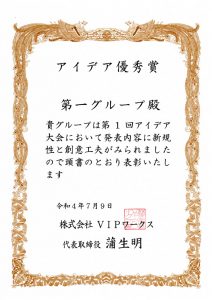 アイデア優秀賞
第一グループ殿
貴グループは第1回アイデア
大会において発表内容に新規
性と創意工夫がみられました
ので頭書のとおり表彰いたし
ます
令和4年7月9日
株式会社VIPワークス
代表取締役 蒲生明